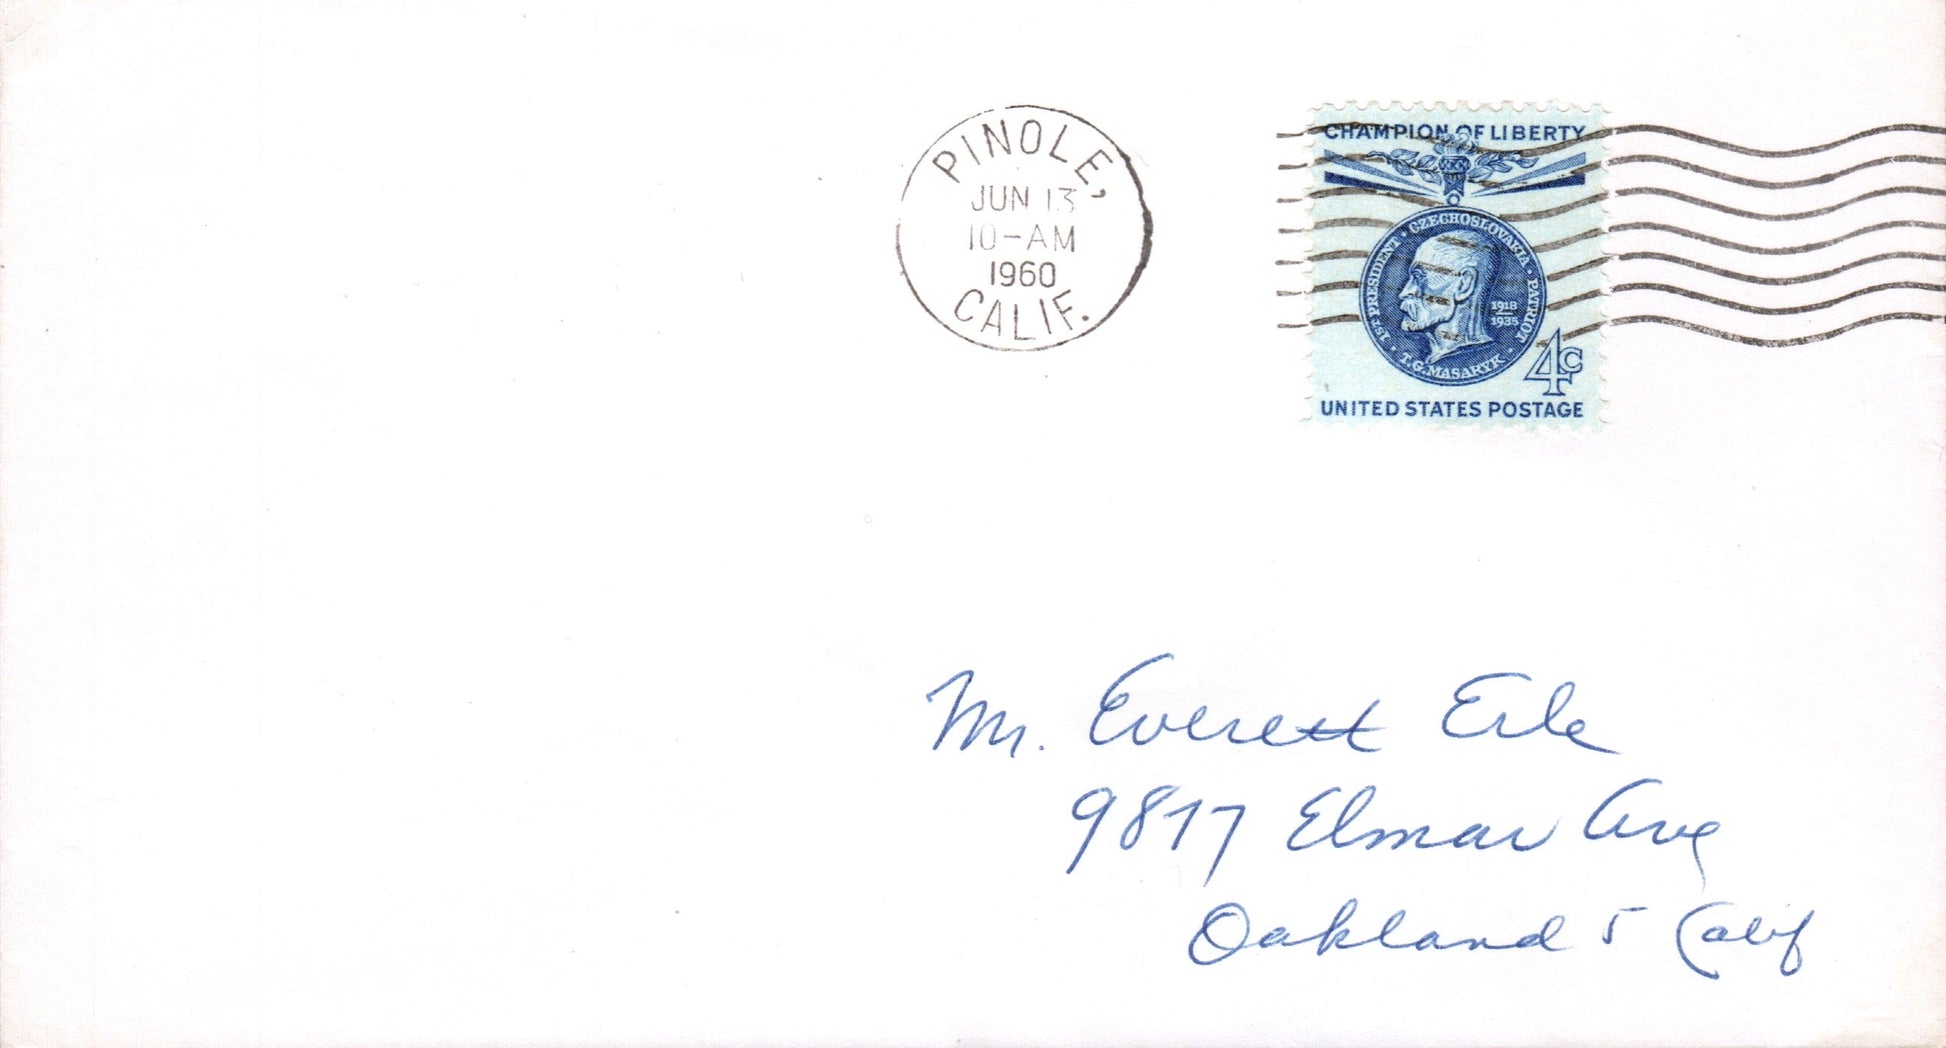 PINOLE,
JUN 13
10-AM
1960
CALIF.
CHAMPION OF LIBERTY
1ST PRESIDENT • CZECHOSLOVAKIA • PATRIOT
1918
1935
• T.G. MASARYK •
4c
UNITED STATES POSTAGE
Mr. Everett Erle
9817 Elmar Ave
Oakland 5 Calif